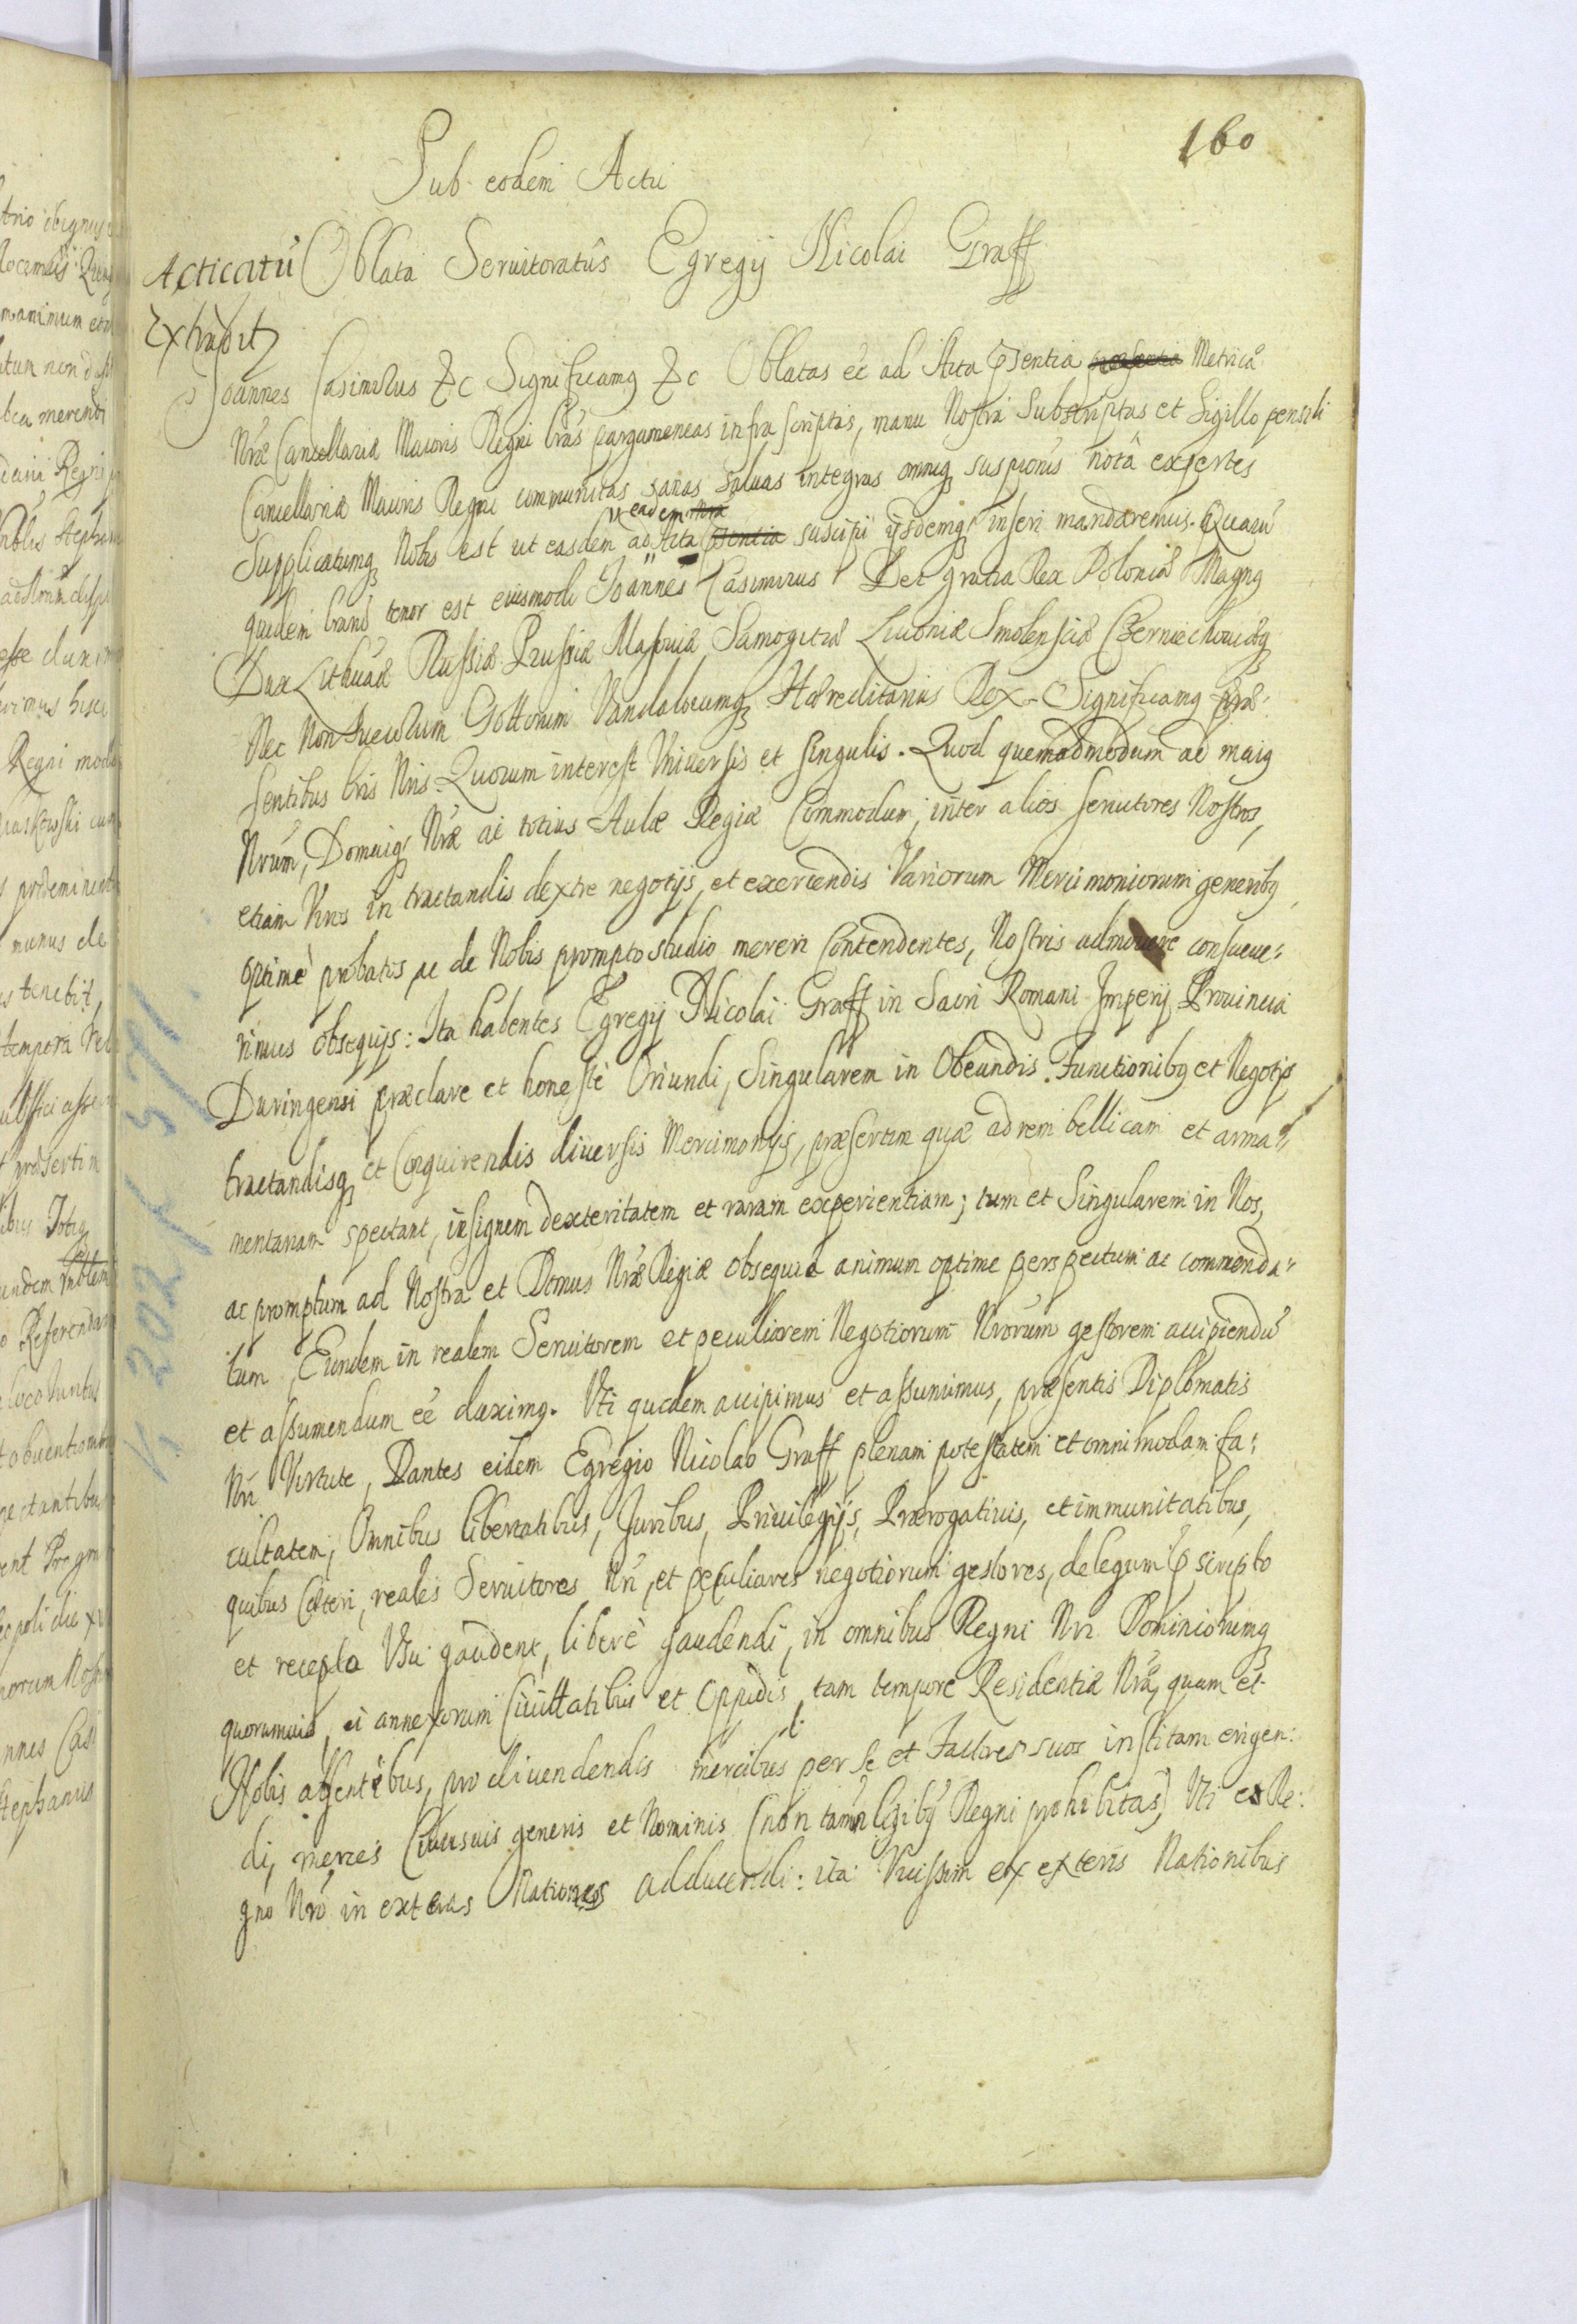 160
Sub eodem Actu
Acticatū Oblata Seruitoratûs Egregij Nicolai Graff
Extradit
Joannes Casimirus &c Significamq &c Oblatas eé ad Acta p̄sentia Metricæ
Nræ Cancellariæ Maioris Regni Lras pargameneas infrascriptas, manu Nostrâ Subscriptas et Sigillo pensili
Cancellariæ Maioris Regni communitas sanas saluas integras omniq suspionis notâ expertes
Supplicatumq Nobis est ut easdem ad eadem Acta suscipi ijsdemq inseri mandaremus. Quarū
quidem Lrarū tenor est eiusmodi Joannes Casimirus Dei gratia Rex Poloniæ Magnq
Dux Lithuaæ Russiæ Prussiæ Masouiæ Samogitiæ Liuoniæ Smolensciæ Czerniechouiæq
Nec Non Suecorum Gottorum Vandalorumq Hæreditarius Rex. Significamq præ:
sentibus Lris Nris Quorum interest Vniuersis et singulis. Quod quemadmodum ad maiq
Nrūm, Domuiq Nræ ac totius Aulæ Regiæ Commodum, inter alios seruitores Nostros,
etiam Viros in tractandis dextre negotijs, et exercendis Variorum Mercimoniorum generibq
optimè probatos ac de Nobis prompto studio mereri Contendentes, Nostris admouere consueue:
rimus obsequijs: Ita habentes Egregij Nicolai Graff in Sacri Romani Imperij Prouincia
Duringensi præclare et honestè Oriundi, Singularem in Obeundis Functionibq et Negotijs
tractandisq et Conquirendis diuersis Mercimonijs, præsertim quæ ad rem bellicam et arma:
mentariam spectant, insignem dexteritatem et raram experientiam; tum et Singularem in Nos,
ac promptum ad Nostra et Domus Nræ Regiæ obsequia animum optime perspectum ac commenda:
tum, Eundem in realem Seruitorem et peculiarem Negotiorum Nrorum gestorem accipiendū
et assumendum eé duximq. Vti quidem accipimus et assumimus, præsentis Diplomatis
Nri Virtute, Dantes eidem Egregio Nicolao Graff plenam potestatem et omnimodam fa:
cultatem, Omnibus libertatibus, Juribus, Priuilegijs, Prærogatiuis, et immunitatibus,
quibus Cæteri, reales Seruitores Nri, et peculiares negotiorum gestores, de legum p̄scripto
et recepto Vsu gaudent, liberè gaudendi, in omnibus Regni Nri Dominiorumq
quorumuis, ei annexorum Ciuitatibus et Oppidis, tam tempore Residentiæ Nræ, quam et
Nobis absentibus, pro diuendendis mercibus per se et Factores suos institam erigen:
di, merces Cuiusuis generis et Nominis (non tamn legibq Regni prohibitas) Vti ex Re:
gno Nro in exteras Nationes adducendi: ita Vicissim ex exteris Nationibus
K 202 f 571.